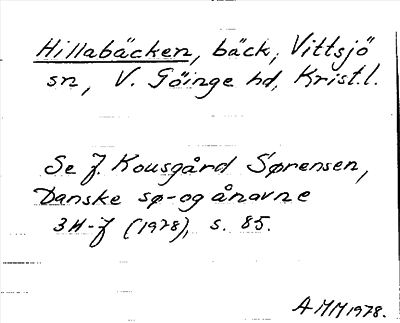 Hillabäcken, bäck, Vittsjö
sn, V. Göinge hd, Krist.l.
Se J. Kousgård Sørensen,
Danske sø- og ånavne
3 H-J (1978), s. 85.
AMM 1978.